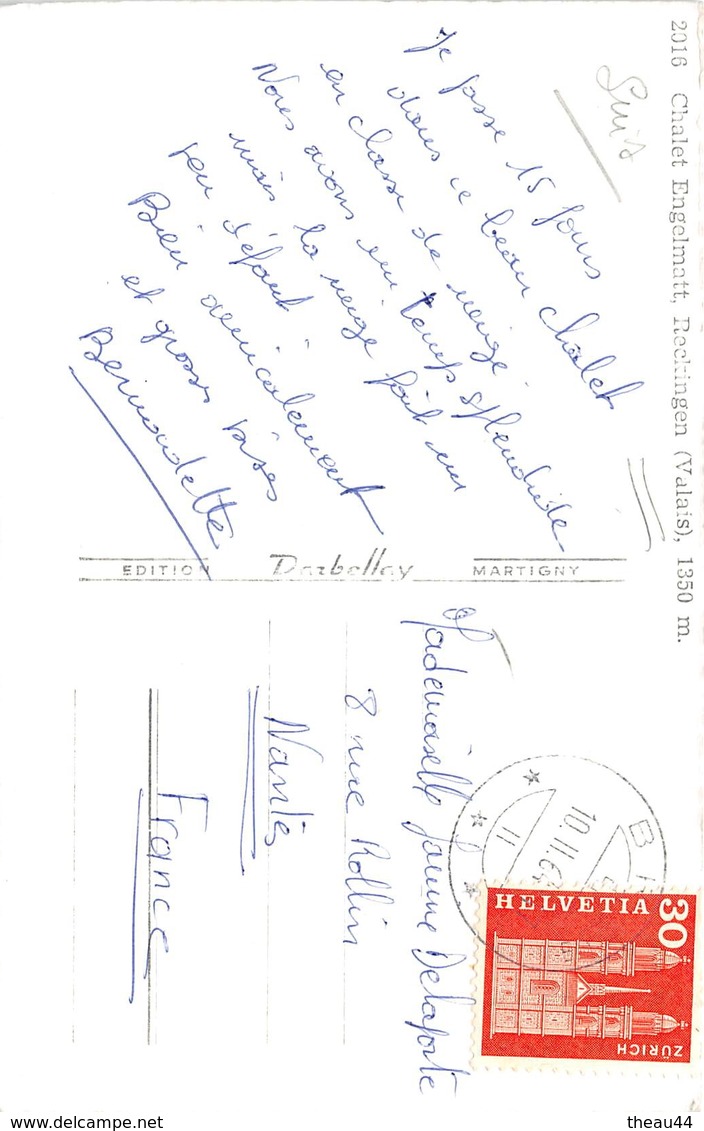 2016 Chalet Engelmatt, Reckingen (Valais), 1350 m.
Suis
Je passe 15 jours
dans ce beau châlet
en classe de neige.
Nous avons un temps splendide
mais la neige fait un
peu défaut.
Bien amicalement
et grosses bises
Bernadette
EDITION Darbellay MARTIGNY
Mademoiselle Jeanne Delaporte
8 rue Rollin
Nantes
France
10.II.6
11
HELVETIA
30
ZÜRICH
https://www.delcampe.net
theau44